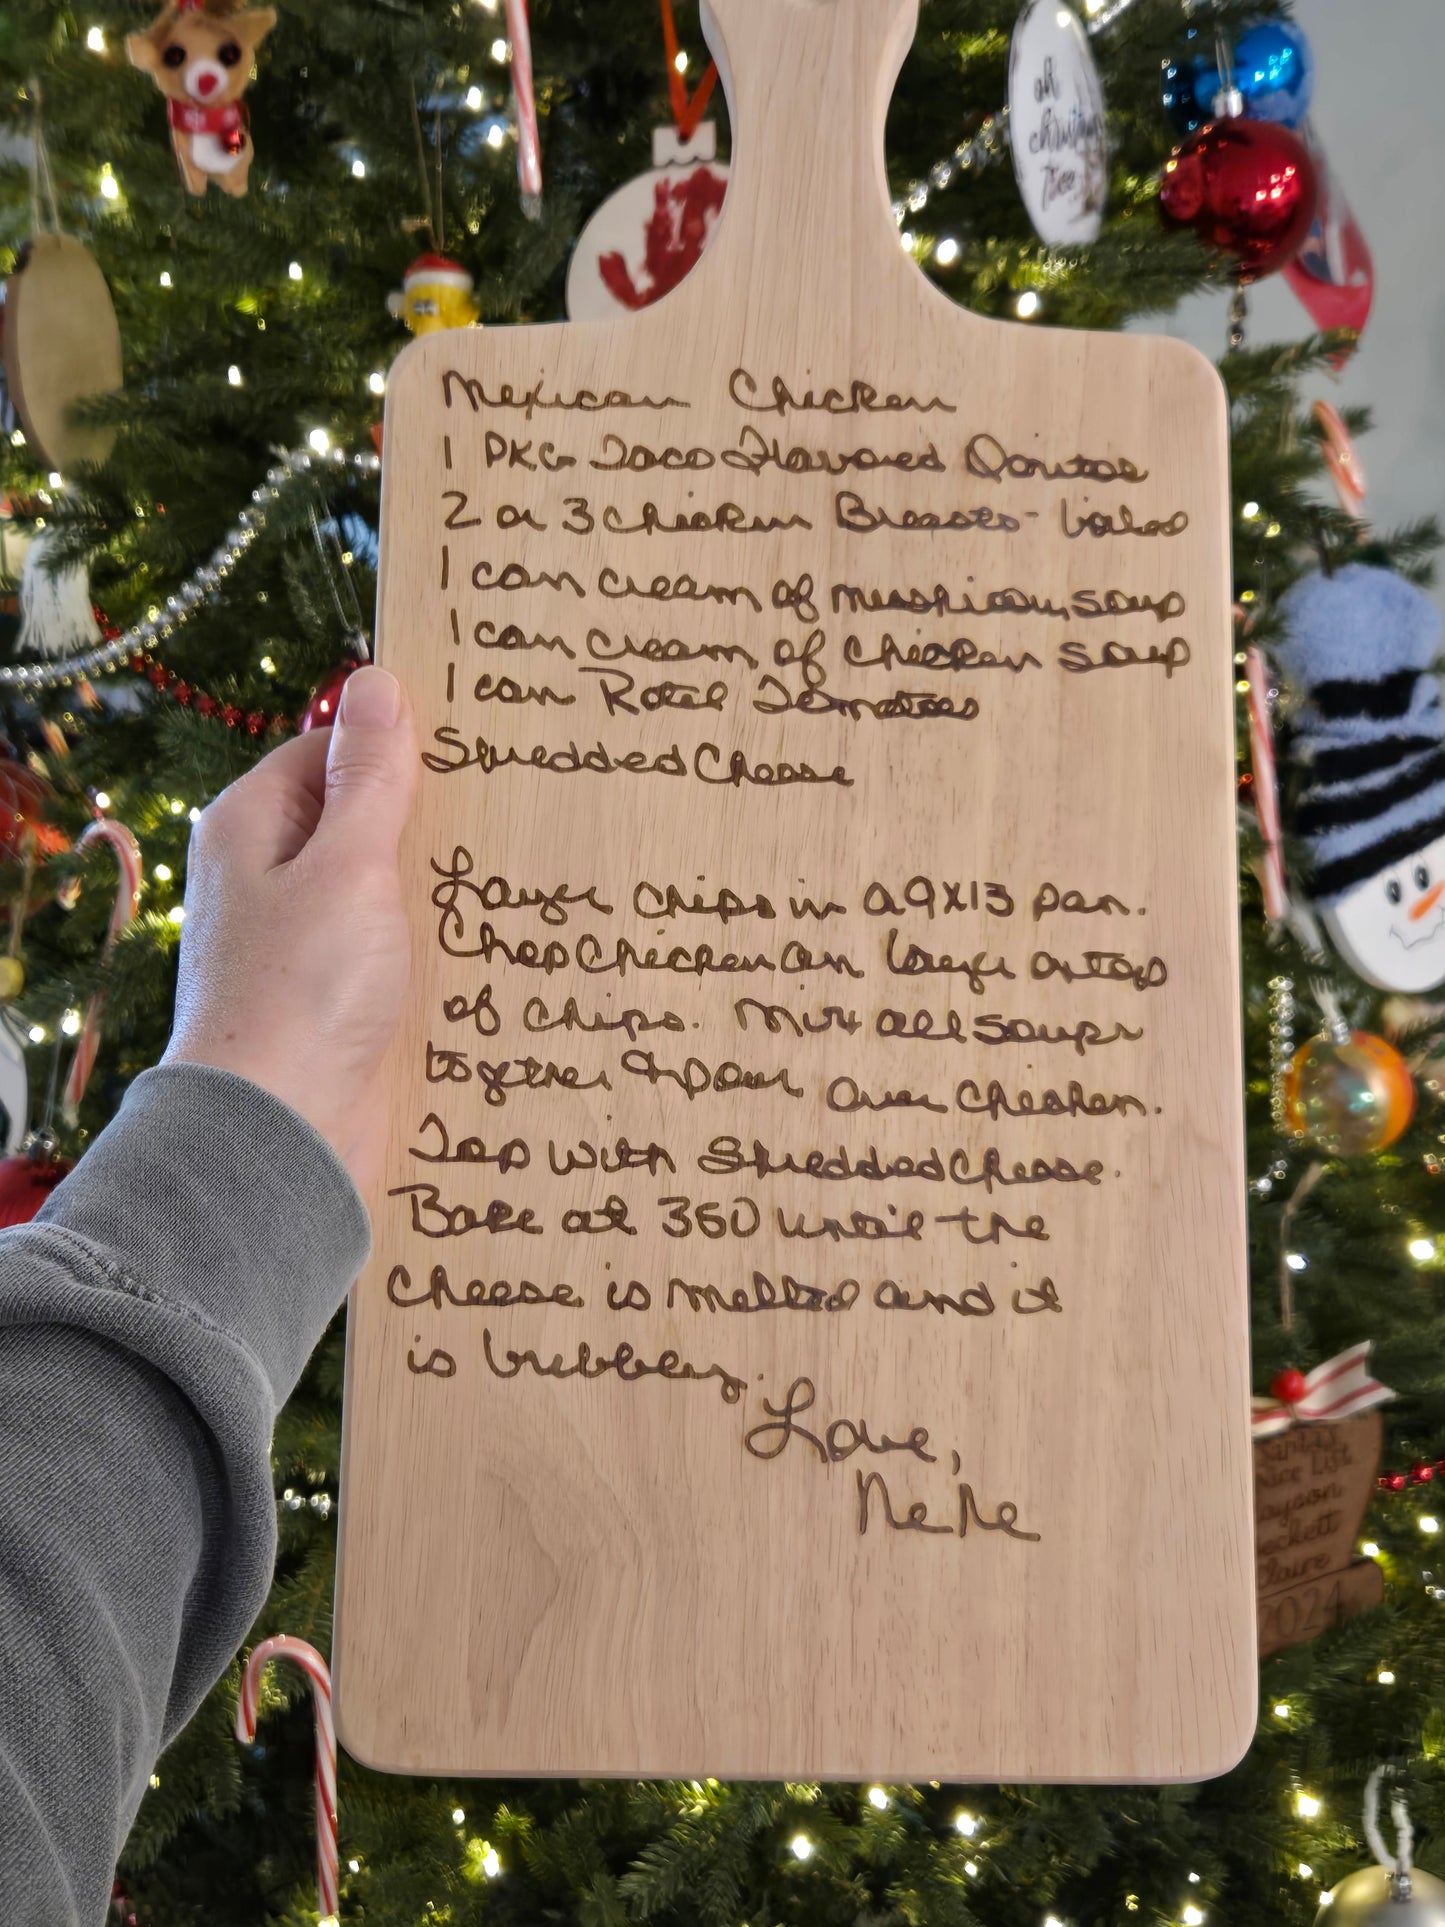 oh
christmas
tree
Mexican Chicken
1 PKG Taco Flavored Doritos
2 or 3 chicken Breasts - boiled
1 can cream of mushroom soup
1 can cream of chicken soup
1 can Rotel Tomatoes
Shredded Cheese
Layer chips in a 9x13 pan.
Chop chicken an layer on top
of chips. Mix all soups
together & pour over chicken.
Top with Shredded Cheese.
Bake at 350 until the
cheese is melted and it
is bubbley.
Love,
NeNe
Santa's
Nice List
Claire
2024